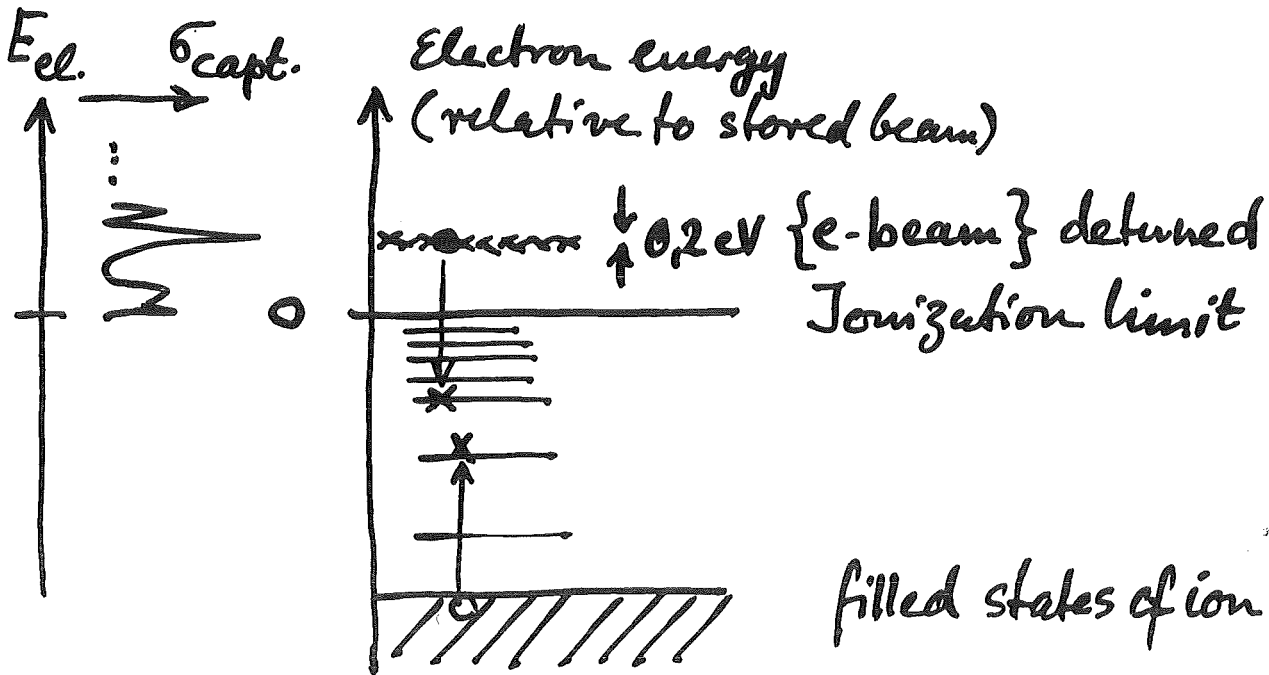 E el. σ capt. Electron energy
(relative to stored beam)
0,2 eV {e-beam} detuned
0 Ionization limit
filled states of ion